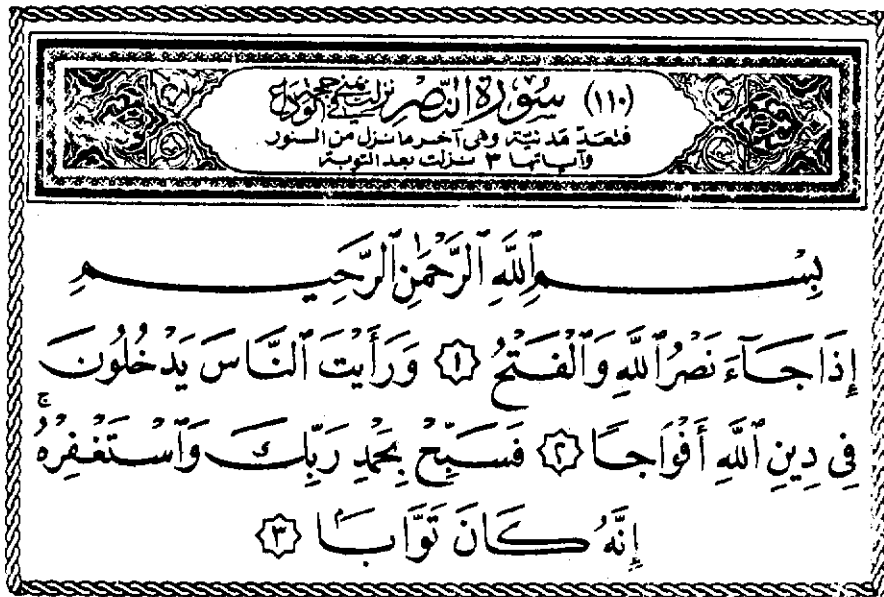 (١١٠) سُورَةُ النَّصْرِ نزلت بمنى في حجة الوداع
فتعدّ مدنيّة وهى آخر ما نزل من السور
وآياتها ٣ نزلت بعد التوبة
بِسْمِ ٱللَّهِ ٱلرَّحْمَٰنِ ٱلرَّحِيمِ
إِذَا جَآءَ نَصْرُ ٱللَّهِ وَٱلْفَتْحُ ۝١ وَرَأَيْتَ ٱلنَّاسَ يَدْخُلُونَ
فِى دِينِ ٱللَّهِ أَفْوَاجًا ۝٢ فَسَبِّحْ بِحَمْدِ رَبِّكَ وَٱسْتَغْفِرْهُۚ
إِنَّهُۥ كَانَ تَوَّابَۢا ۝٣